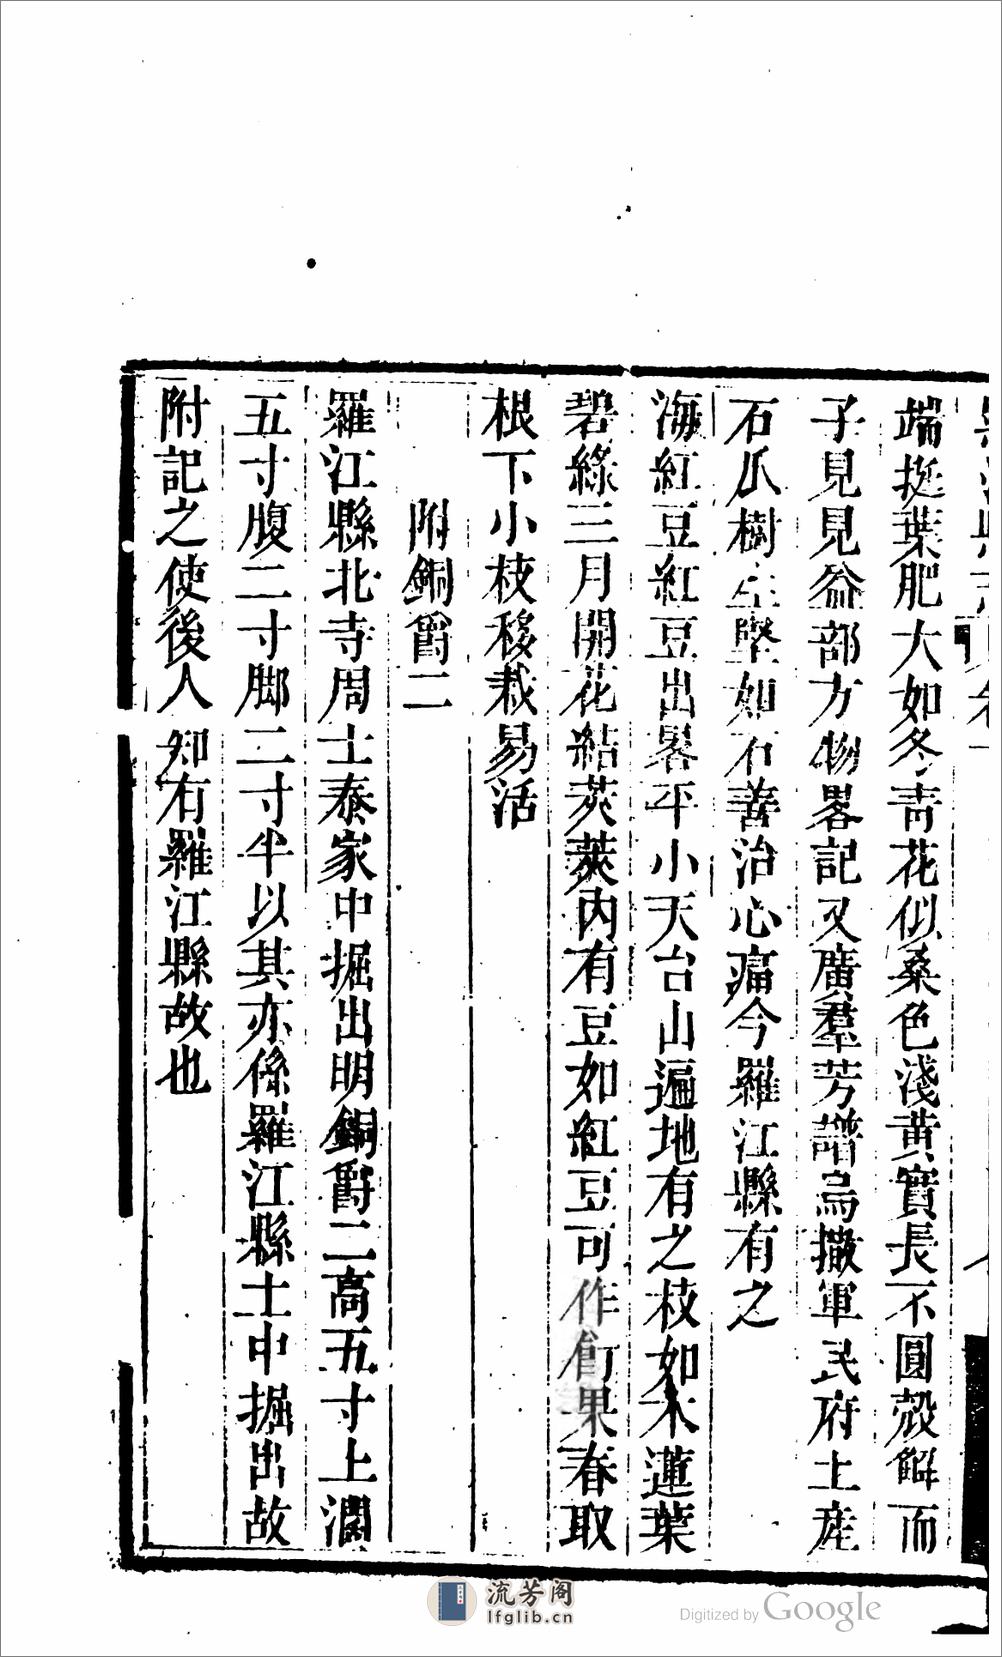 端挺葉肥大如冬青花似桑色淺黄實長不圓殻解而
子見見益部方物畧記又廣羣芳譜烏撒軍民府土産
石瓜樹生堅如石善治心痛今羅江縣有之
海紅豆紅豆出畧平小天台山遍地有之枝如木蓮葉
碧綠三月開花結莢莢内有豆如紅豆可作飣果春取
根下小枝移栽易活
附銅爵二
羅江縣北寺周士泰家中掘出明銅爵二高五寸上濶
五寸腹二寸脚二寸半以其亦係羅江縣土中掘出故
附記之使後人知有羅江縣故也
流芳阁
lfglib.cn
Digitized by Google